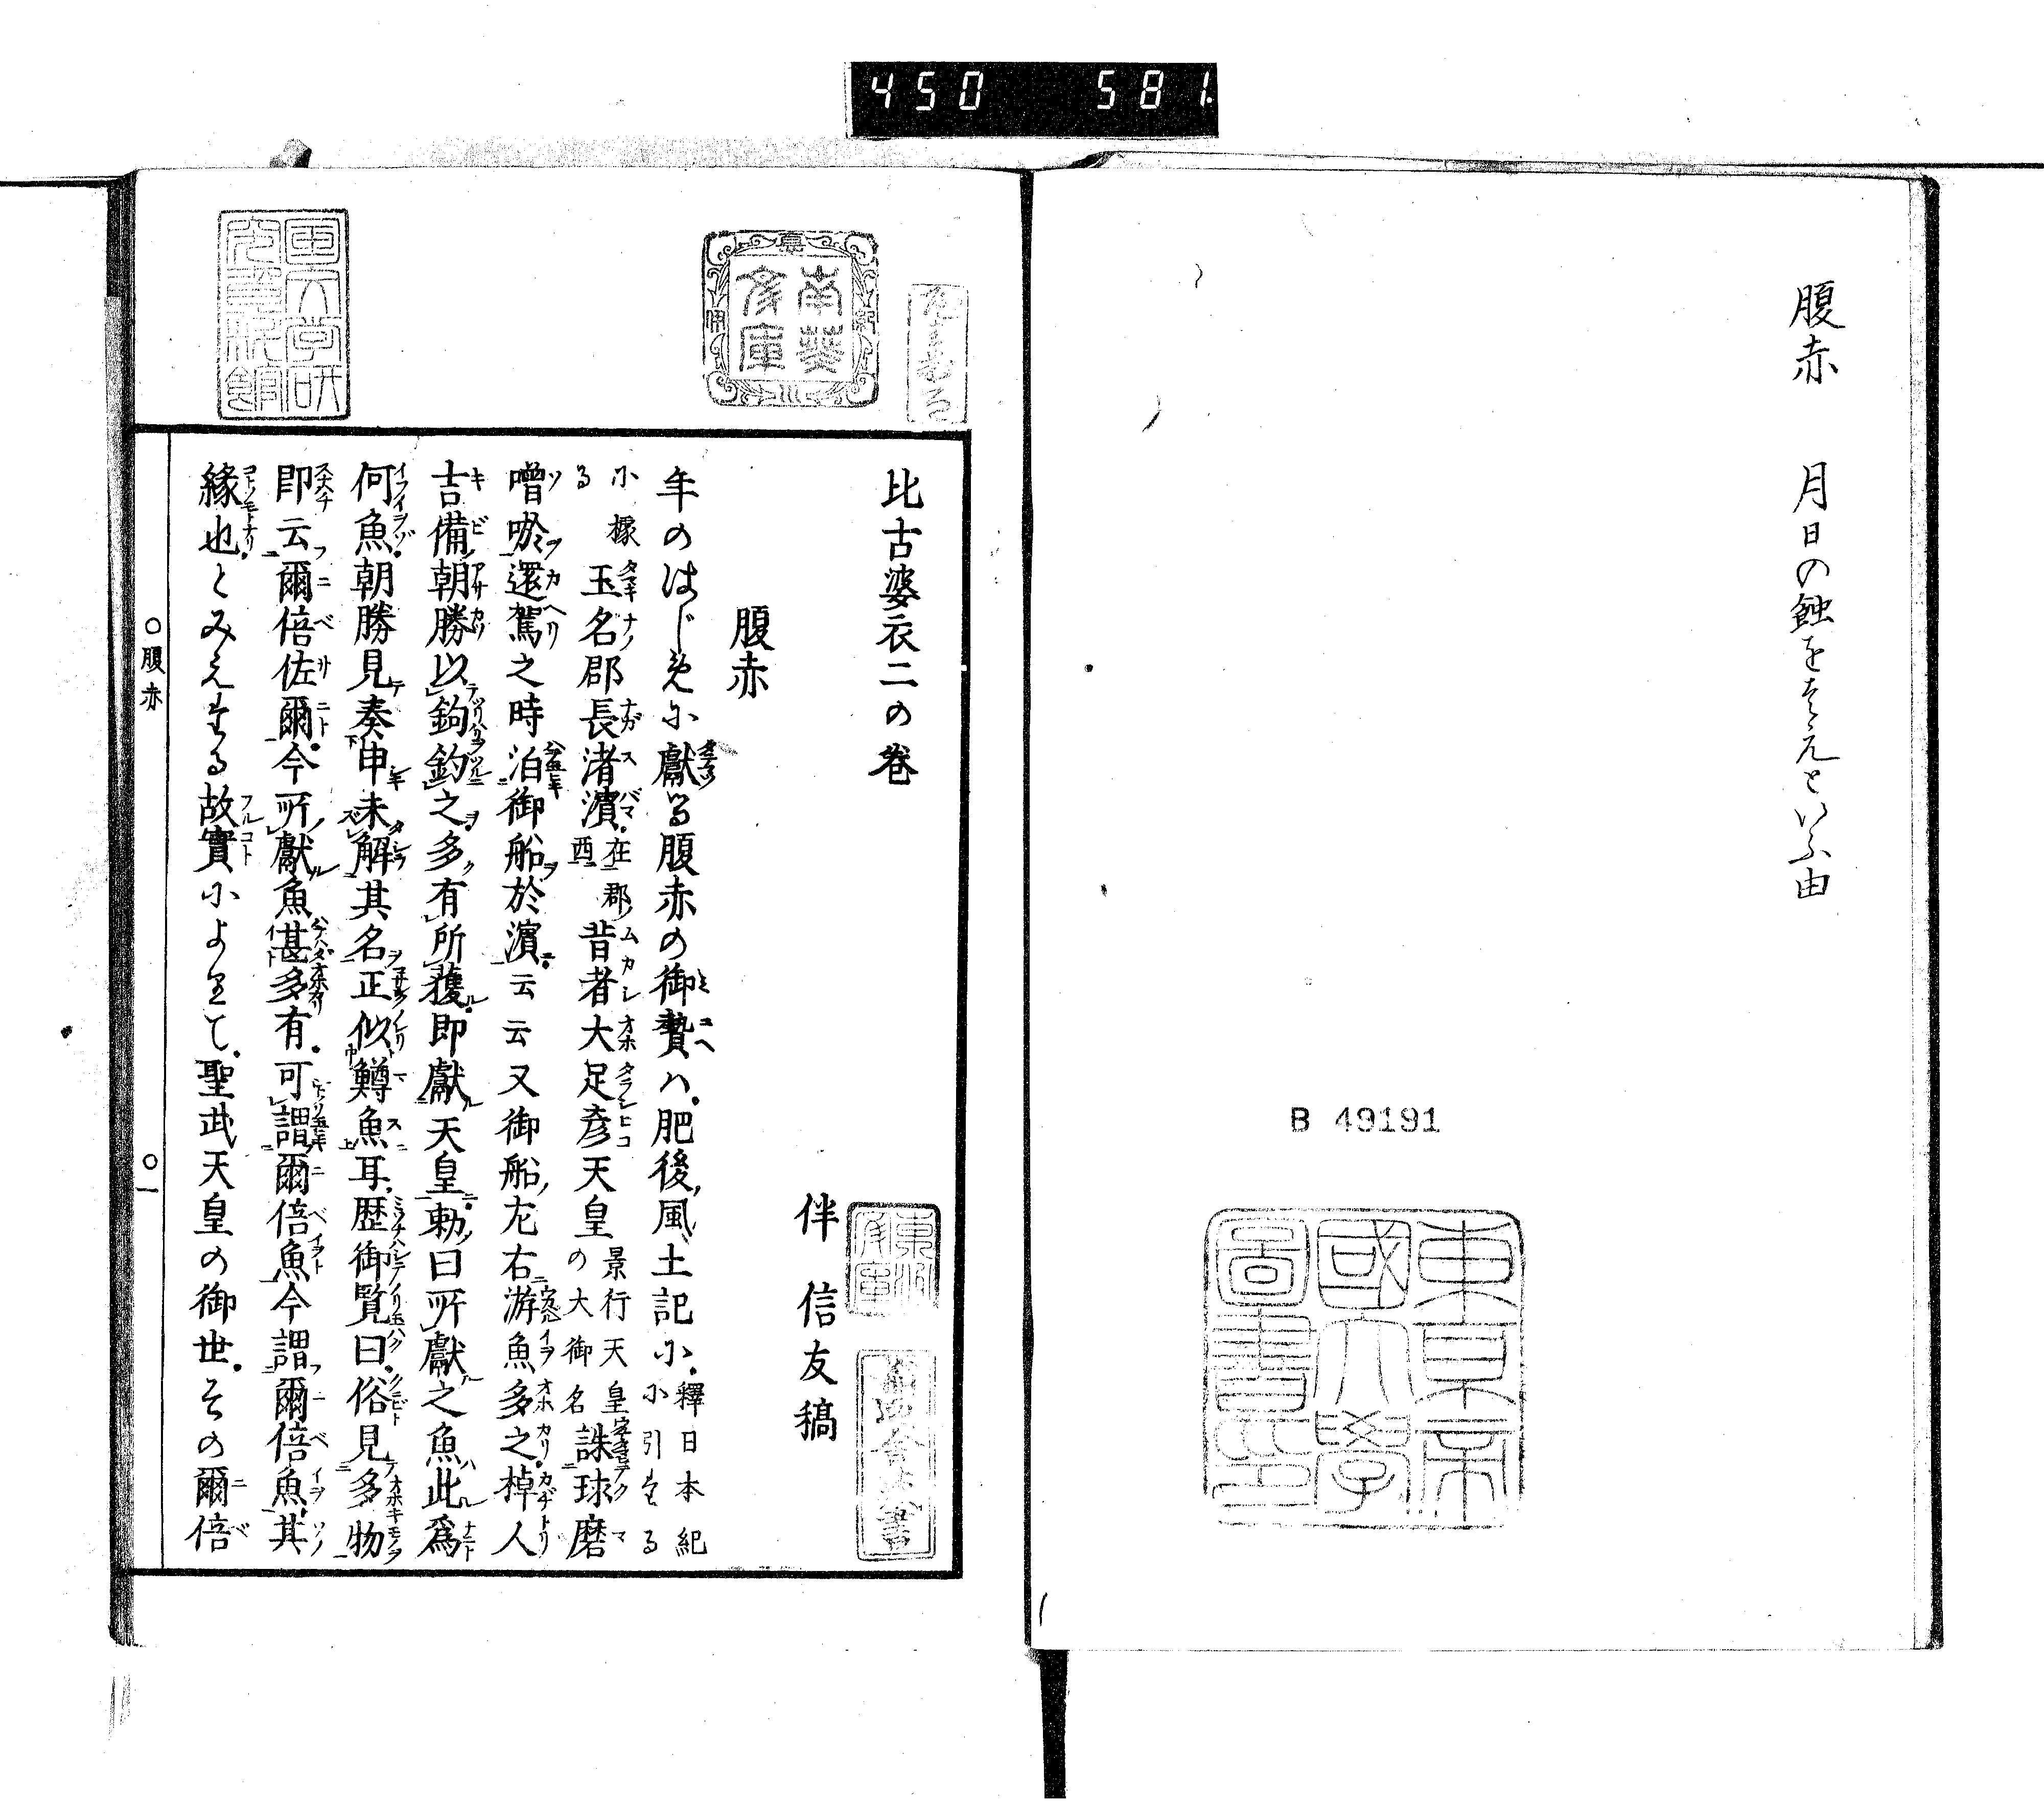 450 581
腹赤 月日の蝕をはえといふ由
B 49191
東京帝國大學圖書印
南葵文庫
比古婆衣二の巻
伴信友稿
腹赤
年のはじめに獻る腹赤の御贄ハ肥後風土記に釋日本紀に引たる
に據る玉名郡長渚濱在郡西昔者大足彦天皇景行天皇の大御名誅球磨
噌唹還駕之時泊御船於濱云云又御船左右游魚多之棹人
吉備朝勝以鉤釣之多有所獲即獻天皇勅曰所獻之魚此爲
何魚朝勝見奏申未解其名正似鱒魚耳歴御覧曰俗見多物
即云爾倍佐爾今所獻魚甚多有可謂爾倍魚今謂爾倍魚其
緣也とみえたる故實によりて聖武天皇の御世その爾倍
○腹赤
○一